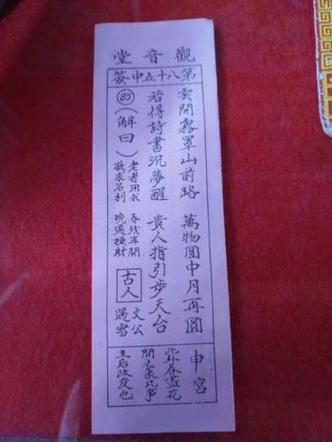 觀音堂
第八十五中簽
雲開霧罩山前路 萬物圓中月再圓
若得詩書沉夢醒 貴人指引步天台
85
(解曰)
老者用
春殘再開
欲求名利
晚遇橫財
古人
文公
遇雪
申宮
此卦春盡花
開之象凡事
后改變也